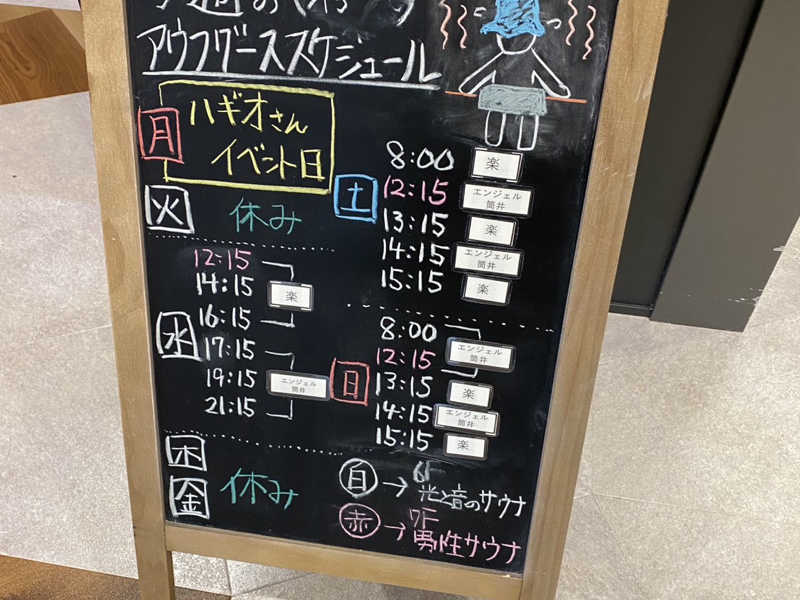 アウフグーススケジュール
月
ハギオさん
イベント日
火
休み
水
12:15
14:15
16:15
楽
17:15
19:15
21:15
エンジェル
筒井
木
金
休み
土
8:00
楽
12:15
エンジェル
筒井
13:15
楽
14:15
エンジェル
筒井
15:15
楽
日
8:00
12:15
エンジェル
筒井
13:15
楽
14:15
エンジェル
筒井
15:15
楽
白→6F
光と音のサウナ
赤→7F
男性サウナ